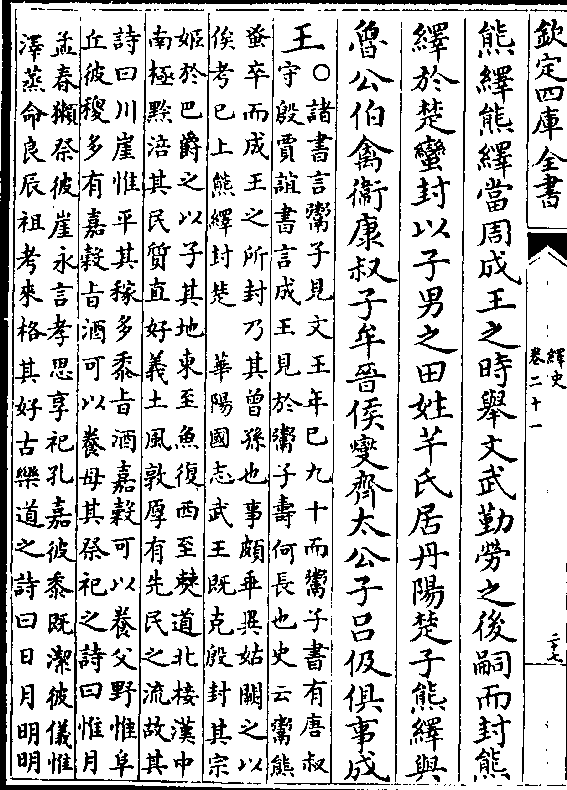 欽定四庫全書
繹史
卷二十一
二十七
熊繹熊繹當周成王之時舉文武勤勞之後嗣而封熊
繹於楚蠻封以子男之田姓芊氏居丹陽楚子熊繹與
魯公伯禽衞康叔子牟晉侯燮齊太公子呂伋俱事成
王
○諸書言鬻子見文王年已九十而鬻子書有唐叔
守殷賈誼書言成王見於鬻子壽何長也史云鬻熊
蚤卒而成王之所封乃其曾孫也事頗乖異姑闕之以
俟考已上熊繹封楚 華陽國志武王既克殷封其宗
姬於巴爵之以子其地東至魚復西至僰道北接漢中
南極黔涪其民質直好義土風敦厚有先民之流故其
詩曰川崖惟平其稼多黍旨酒嘉穀可以養父野惟阜
丘彼稷多有嘉穀旨酒可以養母其祭祀之詩曰惟月
孟春獺祭彼崖永言孝思享祀孔嘉彼黍既潔彼儀惟
澤蒸命良辰祖考來格其好古樂道之詩曰日月明明